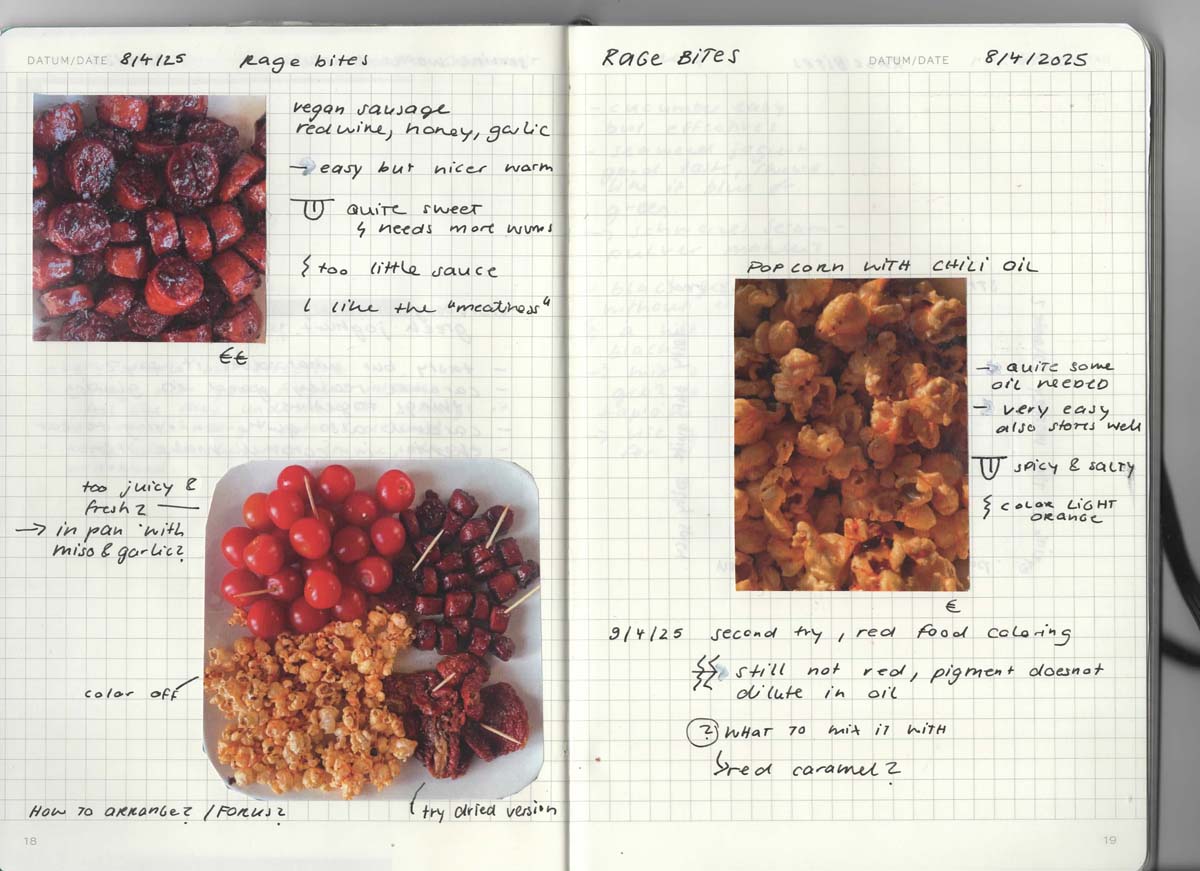 DATUM/DATE 8/4/25 Rage bites
vegan sausage
redwine, honey, garlic
→ easy but nicer warm
QUITE SWEET
↳ needs more wums
too little sauce
I like the "meatiness"
€€
too juicy &
fresh?
→ in pan with
miso & garlic?
color off
HOW TO ARRANGE? / FORKS?
try dried version
18
RAGE BITES DATUM/DATE 8/4/2025
POPCORN WITH CHILI OIL
→ QUITE SOME
OIL NEEDED
→ very easy
also stores well
SPICY & SALTY
COLOR LIGHT
ORANGE
€
9/4/25 second try, red food coloring
still not red, pigment doesnot
dilute in oil
? WHAT TO MIX IT WITH
↳ red caramel?
19